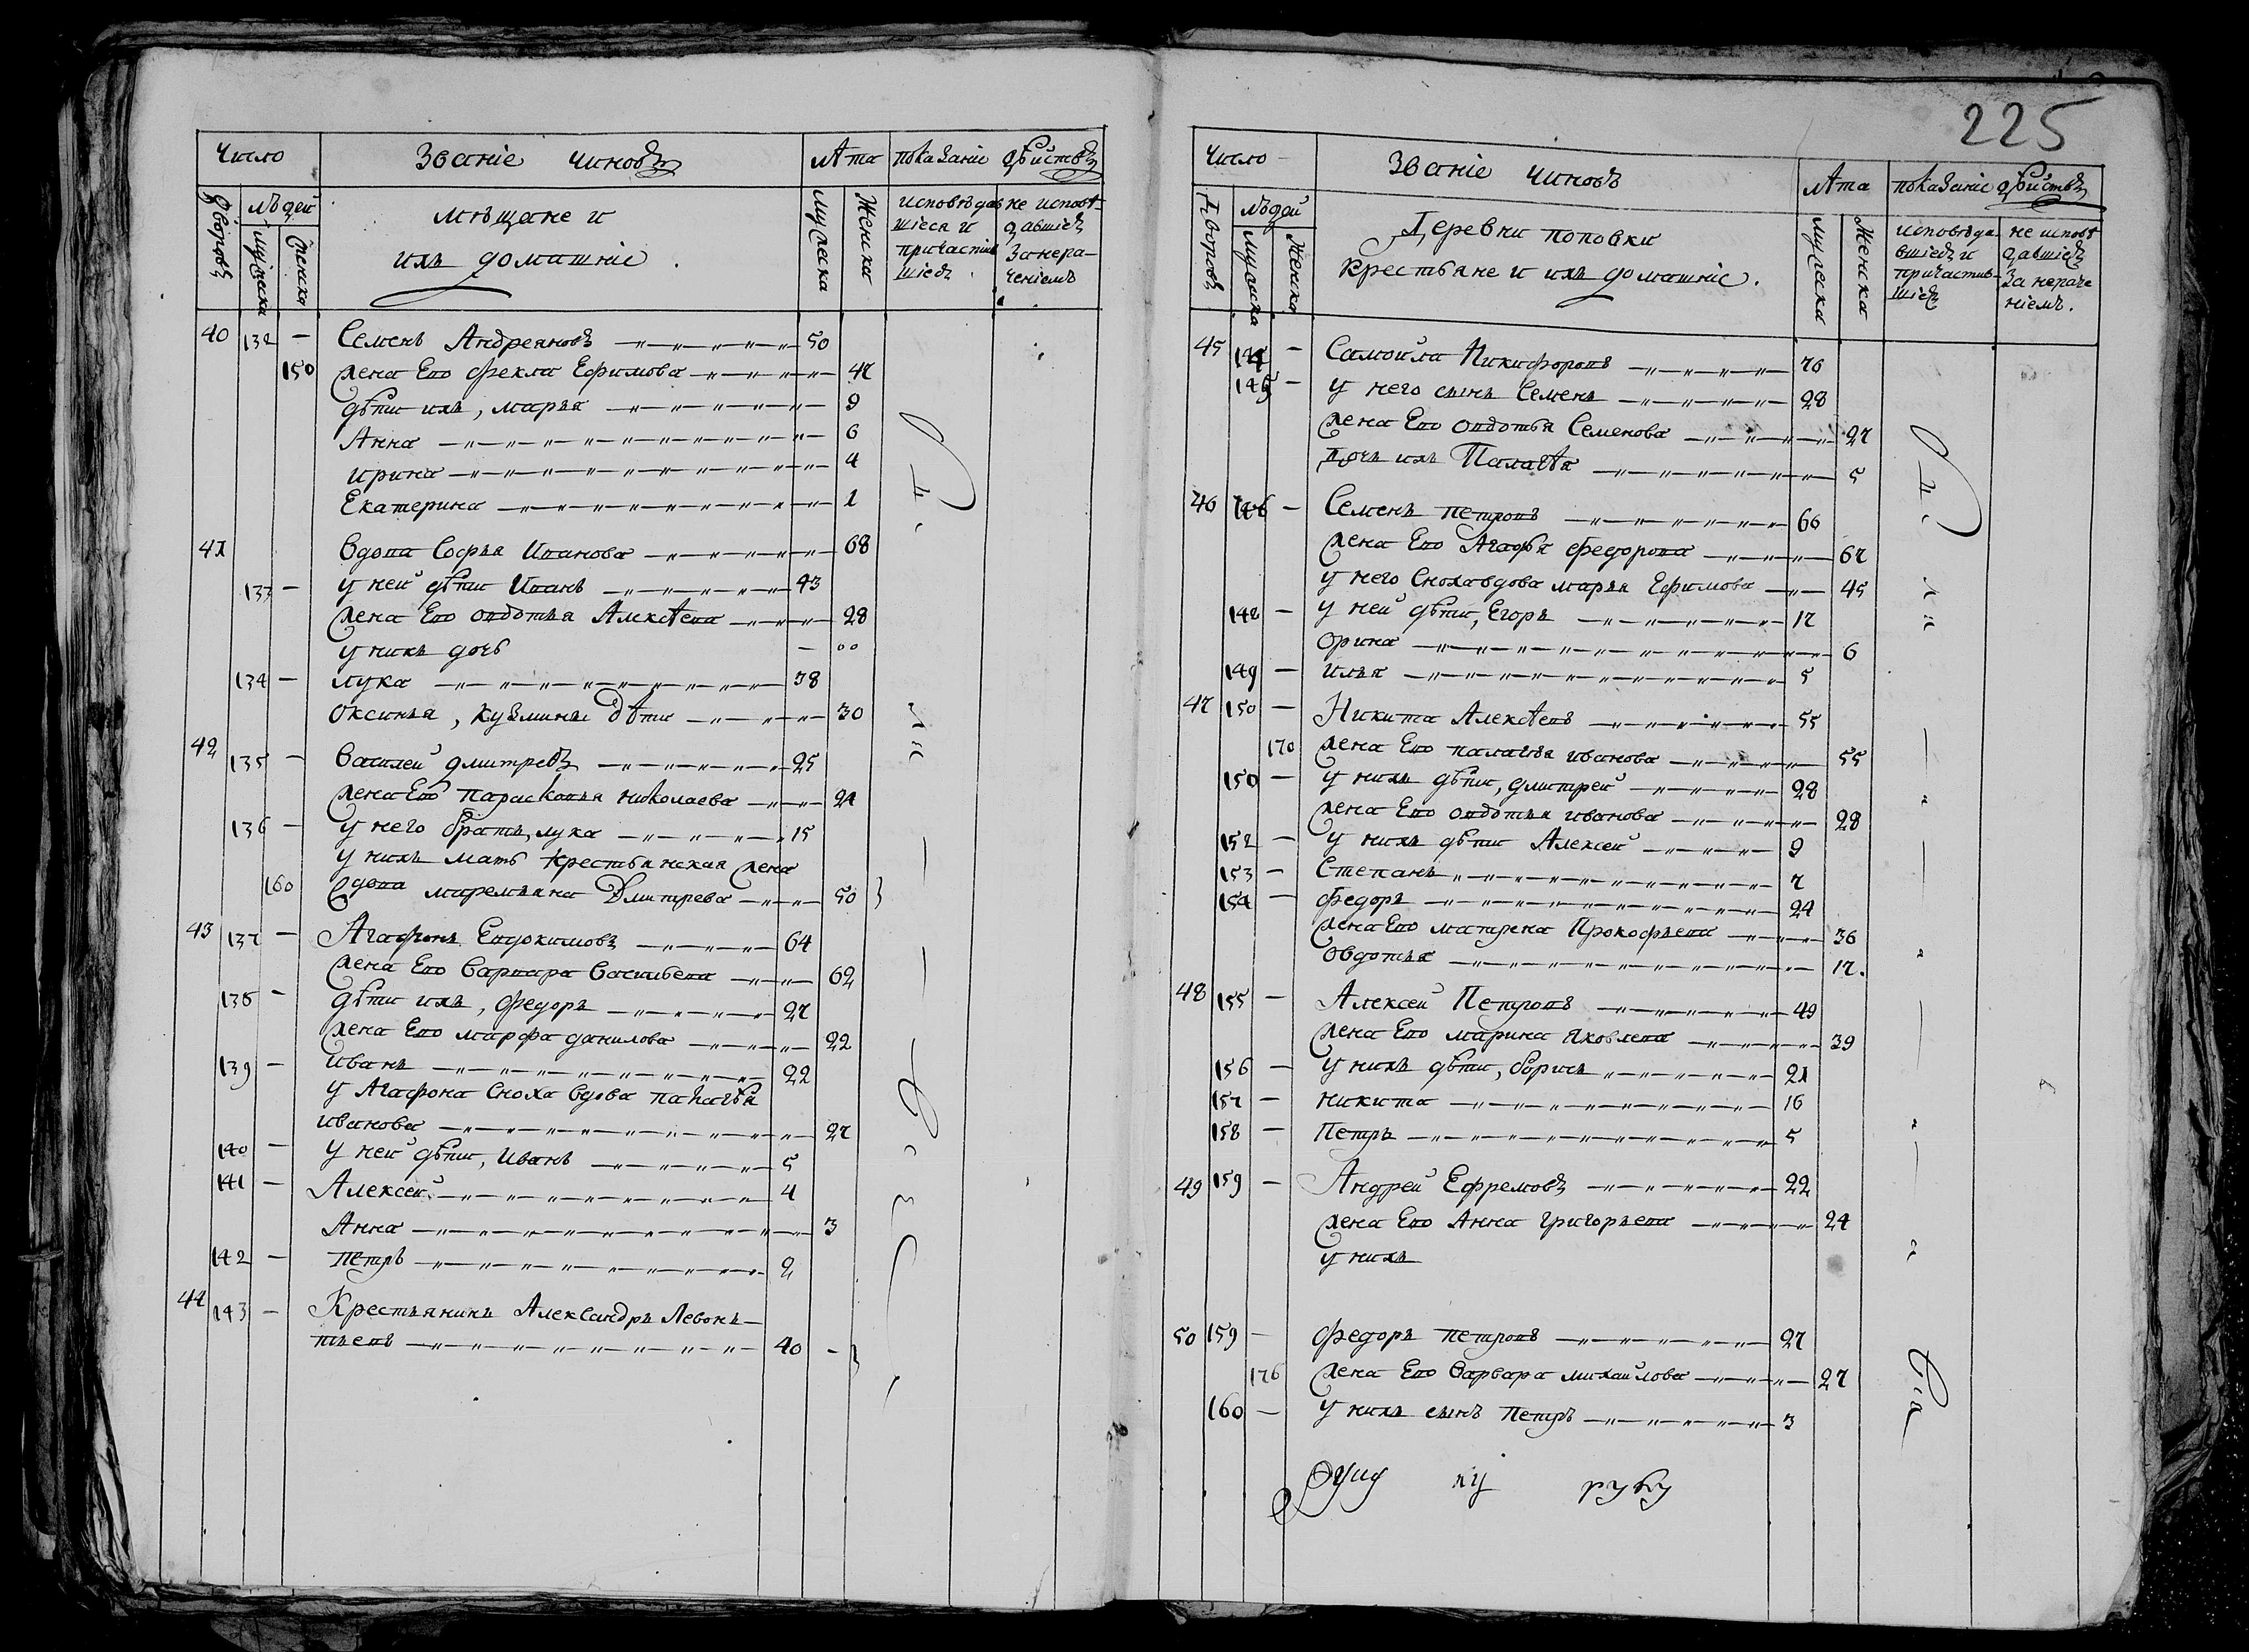 225
Число Званіе чиновъ лѣта показаніе дѣйствъ
Дворовъ людей мѣщане и ихъ домашніе Мужеска Женска исповѣдав не исповѣ
Мужеска Женска шіеся и давшіеся
причастив за нера
шіеся ченіемъ
40 132 — Семенъ Андреяновъ 50
150 жена Его Фекла Ефимова 47
дѣти ихъ, марья 9
Анна 6
ирина 4
Екатерина 1
41 вдова Софья Иванова 68
133 — у ней дѣти Иванъ 43
жена Его овдотья Алексѣева 28
у нихъ дочь — 00
134 — лука 38
оксинья, кузмины дѣти 30
42 135 — василей дмитревъ 25
жена Его парасковья николаева 24
136 — у него братъ, лука 15
у нихъ мать крестьянская жена
160 вдова маремьяна Дмитрева 50
43 137 — Агафонъ Евдокимовъ 64
жена Его варвара васильева 62
138 — дѣти ихъ, федоръ 27
жена Его марфа данилова 22
139 — иванъ 22
у Агафона сноха вдова палагѣя
иванова 27
140 — у ней дѣти, Иванъ 5
141 — Алексей 4
Анна 3
142 — петръ 2
44 143 — Крестьянинъ Александръ Левонъ—
тьевъ 40
Число Званіе чиновъ лѣта показаніе дѣйствъ
Дворовъ людей Деревни поповки Мужеска Женска исповѣда не исповѣ
Мужеска Женска крестьяне и ихъ домашніе. вшіеся и давшіеся
причастив за нераче
шіеся ніемъ.
45 144 — Самойла Никифоровъ 76
145 — у него сынъ Семенъ 28
жена Его овдотья Семенова 27
дочь ихъ Палагѣя 5
46 146 — Семенъ петровъ 66
жена Его Агафья федорова 67
у него сноха вдова марья Ефимова 45
148 — у ней дѣти, Егоръ 17
орина 6
149 — илья 5
47 150 — Никита Алексѣевъ 55
170 жена Его палагѣя иванова 55
150 — у нихъ дѣти, дмитрей 28
жена Его овдотья иванова 28
152 — у нихъ дѣти Алексей 9
153 — Степанъ 7
154 — федоръ 24
жена Его матрена Прокофьева 36
овдотья 17.
48 155 — Алексей Петровъ 49
жена Его марина Яковлева 39
156 — у нихъ дѣти, борисъ 21
157 — никита 16
158 — Петръ 5
49 159 — Андрей Ефремовъ 22
жена Его Анна григорьева 24
у нихъ
50 159 — федоръ петровъ 27
176 жена Его варвара михайлова 27
160 — у нихъ сынъ петръ 3
руку